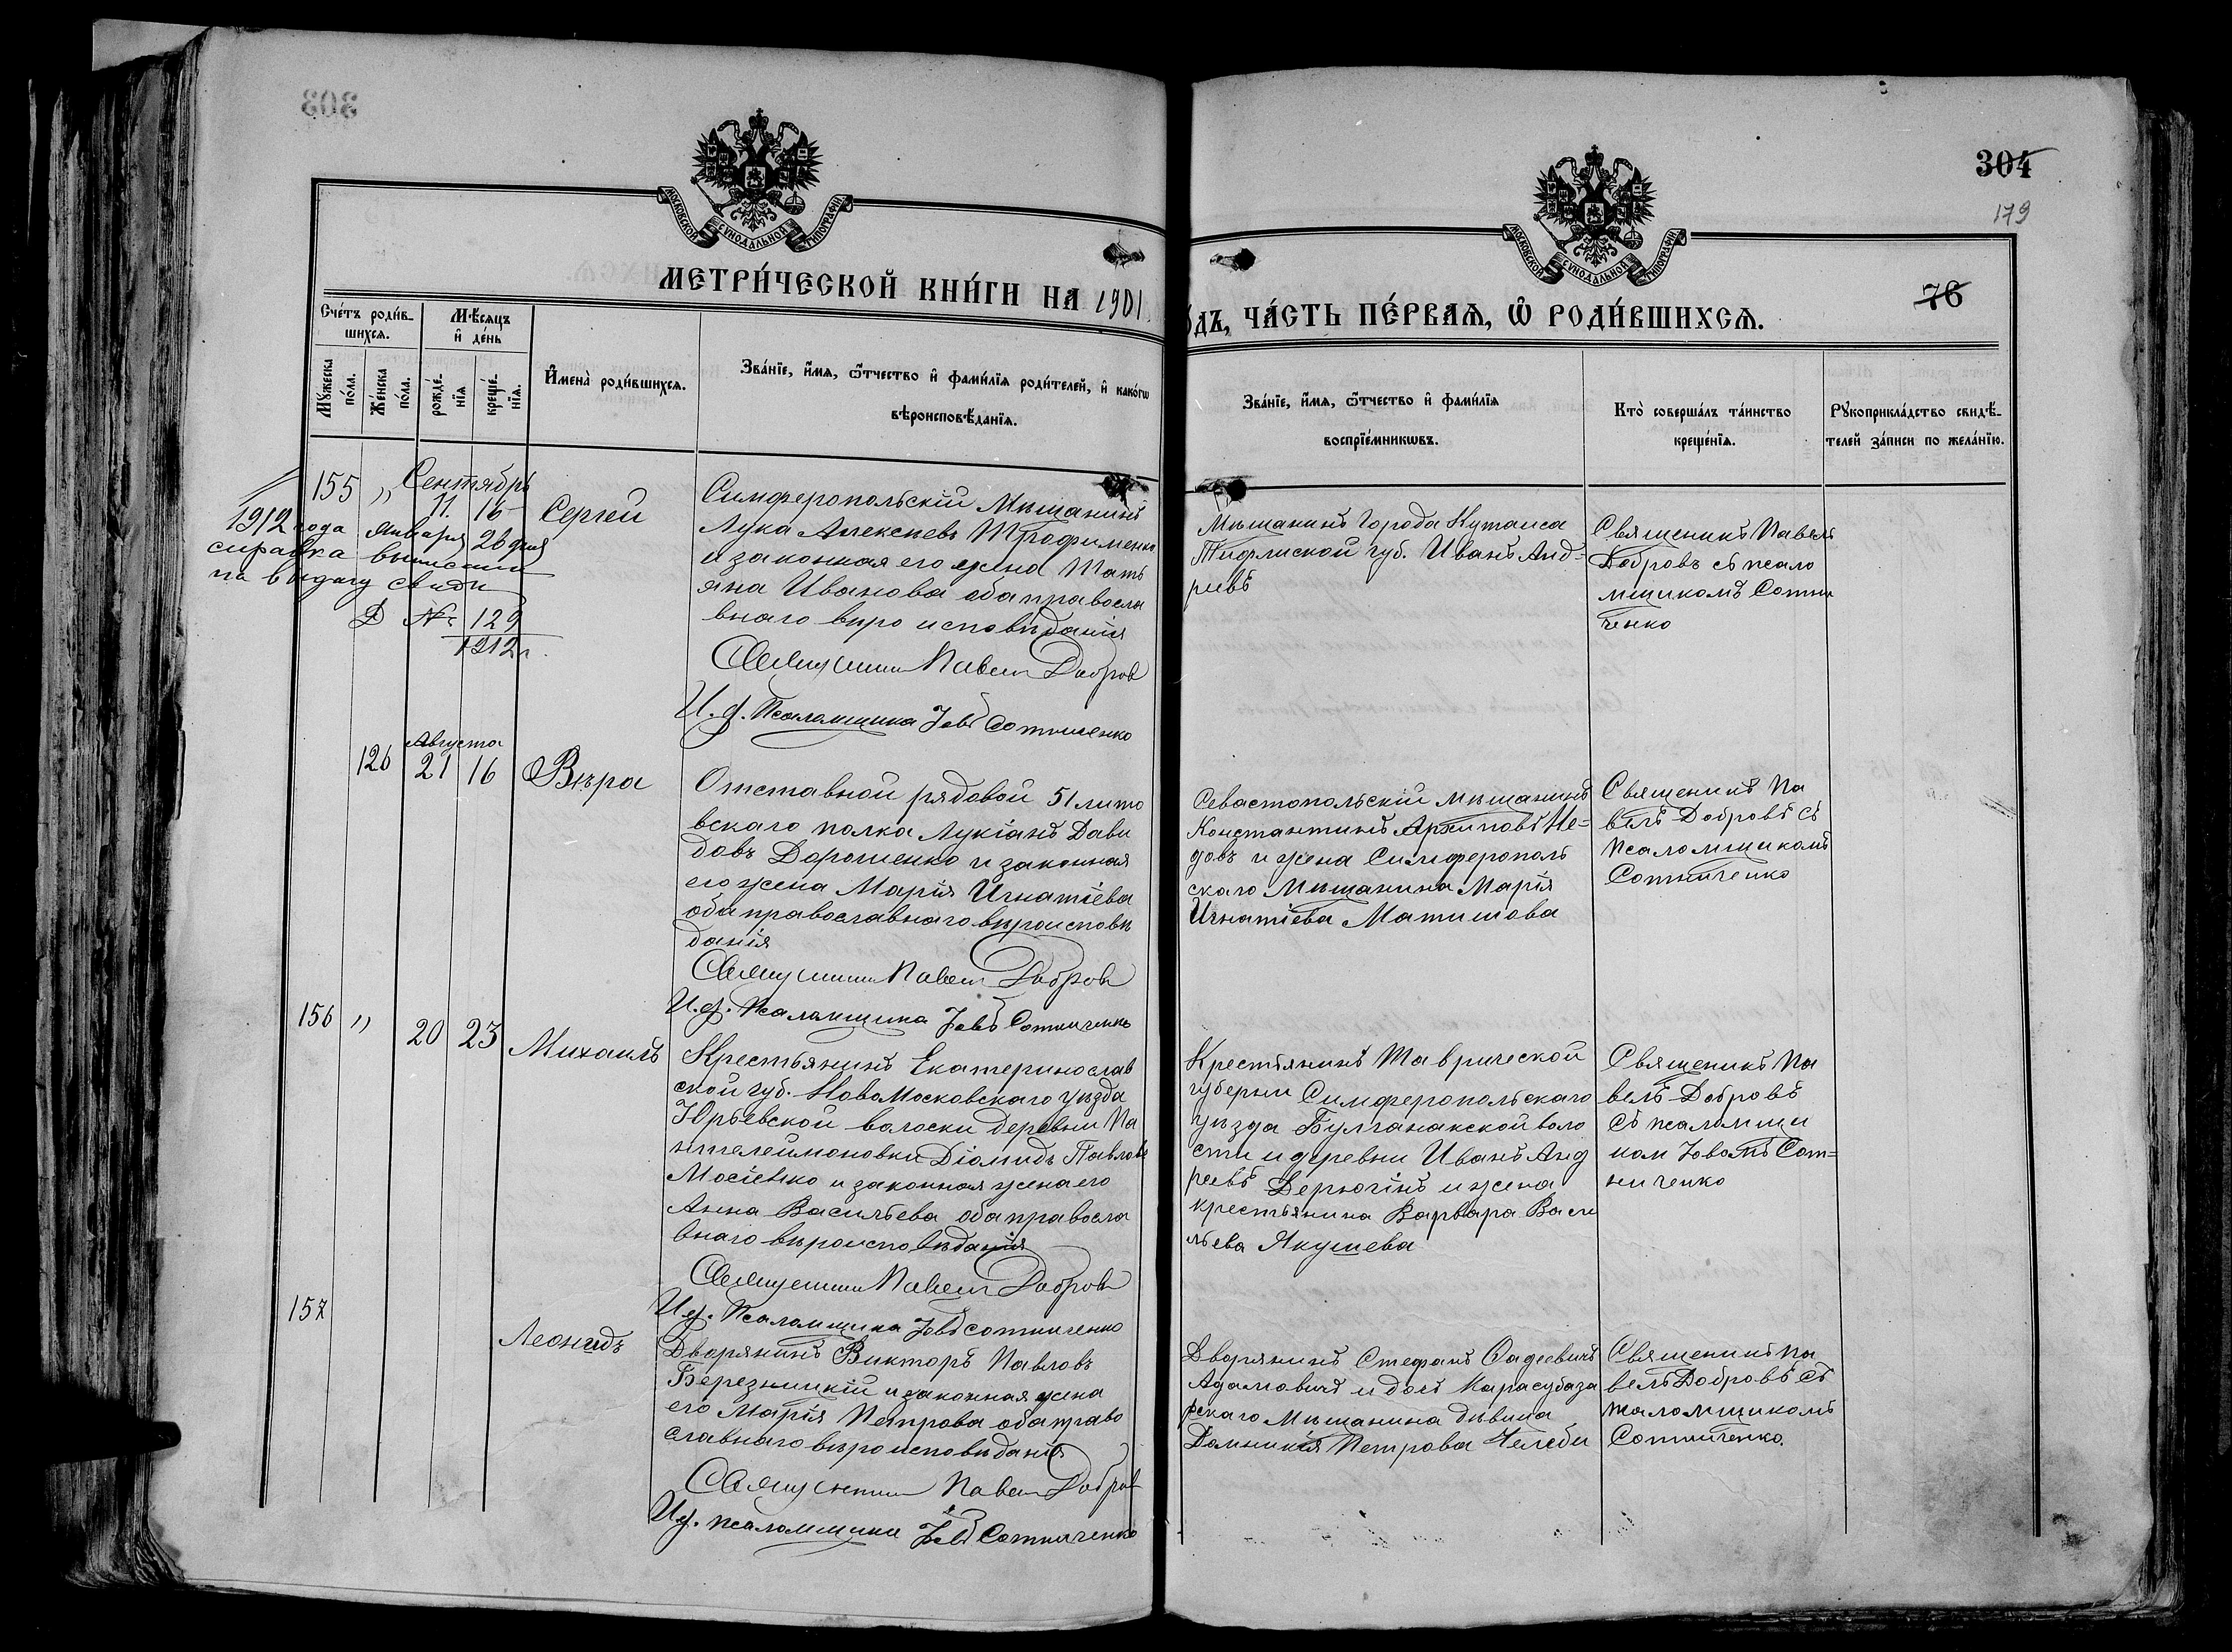 303
304
179
76
МОСКОВСКОЙ СѴНОДАЛЬНОЙ ТИПОГРАФІИ
МОСКОВСКОЙ СѴНОДАЛЬНОЙ ТИПОГРАФІИ
МЕТРИ́ЧЕСКОЙ КНИ́ГИ НА 1901
ДЪ, ЧА́СТЬ ПЕ́РВАѦ, Ѡ҆ РОДИ́ВШИХСѦ.
Сче́тъ роди́в-
шихсѧ.
Мѣ́сѧцъ
и҆ де́нь
Мꙋ́жеска
по́ла.
Же́нска
по́ла.
рожде́-
нїѧ
креще́-
нїѧ.
И҆мена̀ роди́вшихсѧ.
Зва́нїе, и҆́мѧ, ѻ҆́тчество и҆ фами́лїѧ роди́телей, и҆ како́гѡ
вѣроисповѣ́данїѧ.
Зва́нїе, и҆́мѧ, ѻ҆́тчество и҆ фами́лїѧ
воспрїе́мникѡвъ.
Кто̀ соверша́лъ та́инство
креще́нїѧ.
Рꙋкоприкла́дство свидѣ́-
телей за́писи по жела́нїю.
155 „ Сентябрь
11. 16
Сергей
1912 года Января 26 дня
справка
на выдачу свид
Д № 129
1912 г.
Симферопольскій Мѣщанинъ
Лука Алексѣевъ Трофименко
и законная его жена Тать
яна Иванова оба правосла
внаго вѣроисповѣданія
Священникъ Павелъ Добровъ
И. д. Псаломщика Іовъ Сотниченко
Мѣщанинъ города Кутаиса
Тифлиской губ. Иванъ Анд-
реевъ
Священикъ Павелъ
Добровъ съ псало
мщикомъ Сотни
ченко
126
Августа
21 16
Вѣра
Отставной рядовой 51 лито
вскаго полка Лукіанъ Дави
довъ Дорошенко и законная
его жена Марія Игнатіева
оба православнаго вѣроисповѣ
данія
Священникъ Павелъ Добровъ
И. д. Псаломщика Іовъ Сотниченко
Севастопольскій мѣщанинъ
Константинъ Архиповъ Не-
довъ и жена Симферополь
скаго Мѣщанина Марія
Игнатіева Матишова
Священикъ Па
велъ Добровъ съ
Псаломщикомъ
Сотниченко
156 „ 20 23
Михаилъ
Крестьянинъ Екатеринослав
ской губ. НовоМосковскаго уѣзда
Юрьевской волоски деревни Па
нтелеймоновки Діомидъ Павловъ
Мосіенко и законная жена его
Анна Васильева оба правосла
внаго вѣроисповѣданія
Священникъ Павелъ Добровъ
И. д. Псаломщика Іовъ Сотниченко
Крестьянинъ Таврической
губерни Симферопольскаго
уѣзда Булганакской воло
сти и деревни Иванъ Анд
реевъ Дерюгінъ и жена
крестьянина Варвара Васи
льева Якушева
Священикъ Па
велъ Добровъ
съ псаломщи
ком Іовомъ Сот=
ниченко
157
Леонидъ
Дворянинъ Викторъ Павловъ
Березницкій и законная жена
его Марія Петрова оба право
славнаго вѣроисповѣданія
Священникъ Павелъ Добровъ
И. д. псаломщика Іовъ Сотниченко
Дворянинъ Стефанъ Фадеевичъ
Адамовичъ и дочь Карасубаза
рскаго Мѣщанина дѣвица
Домникія Петрова Челеби
Священикъ Па
велъ Добровъ съ
псаломщикомъ
Сотниченко.